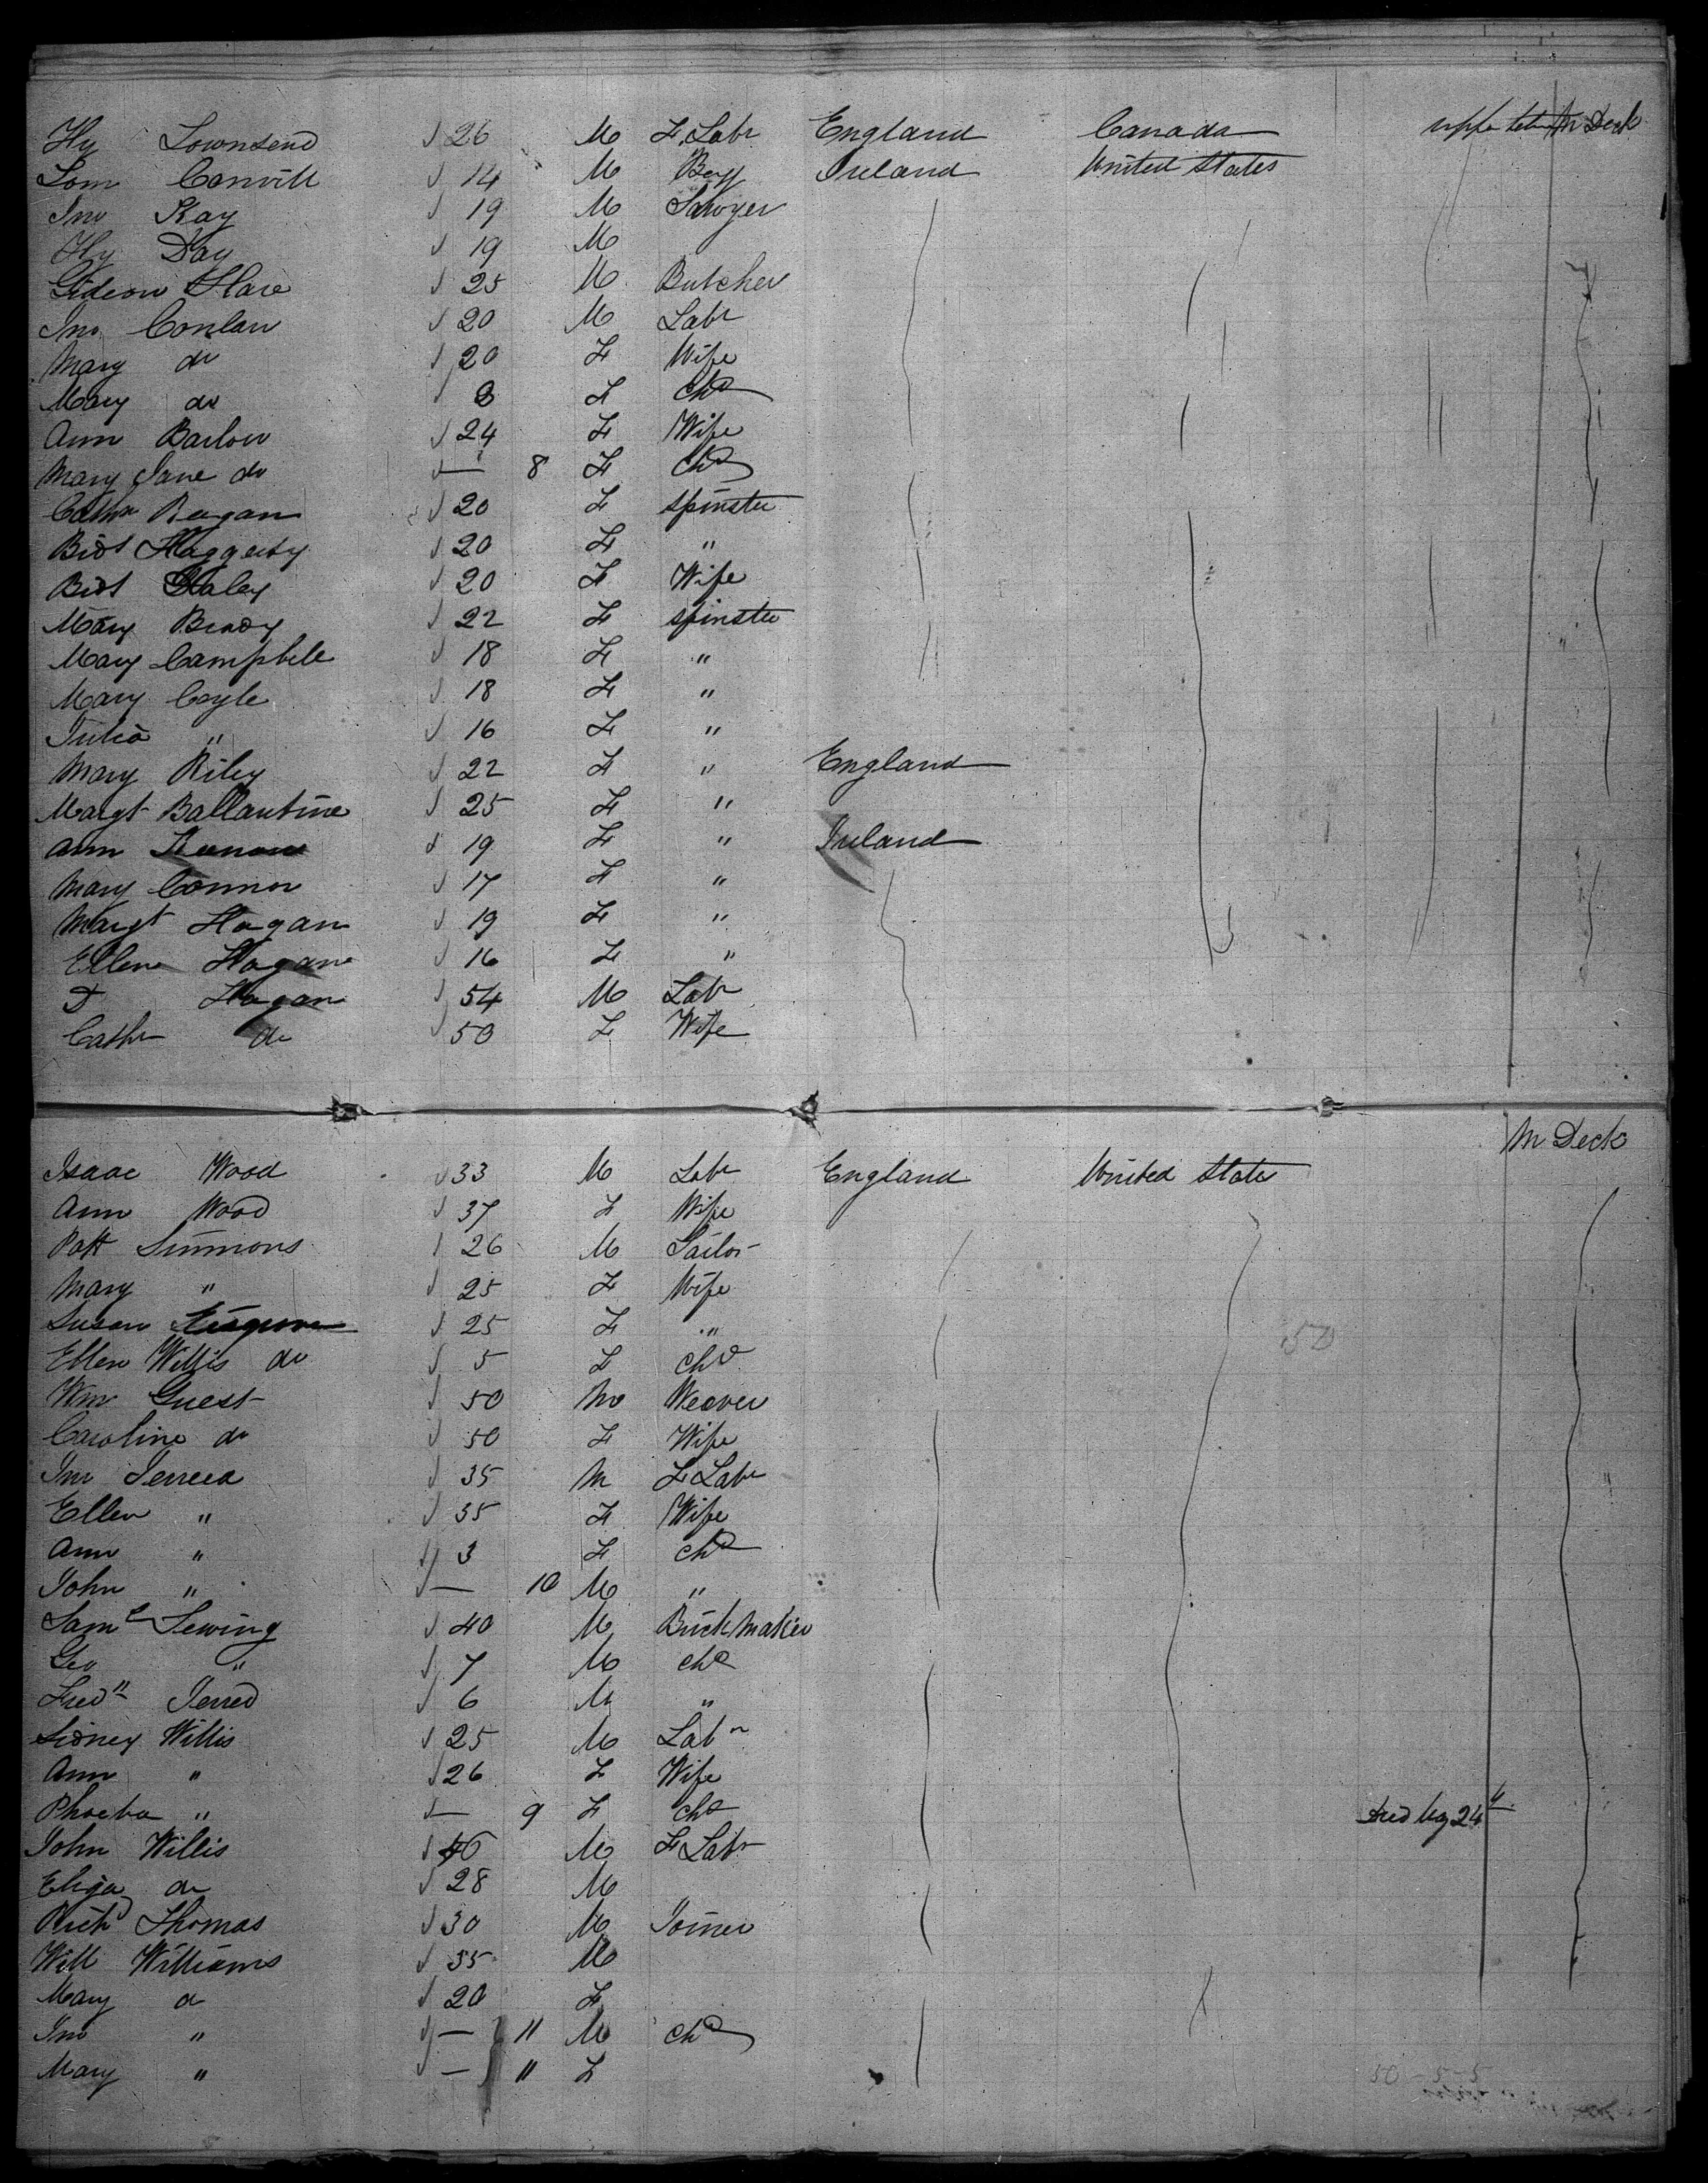 Hy Townsend 26 M F. Labr England Canada M Deck
Tom Convill 14 M Boy Ireland United States
Jno Kay 19 M Sawyer
Hy Day 19 M
Gideon Hare 25 M Butcher
Jno Conlan 20 M Labr
Mary do 20 F Wife
Mary do 8 F Chd
Ann Barlow 24 F Wife
Mary Jane do — 8 F Chd
Regan 20 F Spinster
Bidt Haggerty 20 F "
Bidt 20 F Wife
Mary Brady 22 F Spinster
Mary Campbell 18 F "
Mary Coyle 18 F "
Julia " 16 F "
Mary Riley 22 F " England
Margt Ballantine 25 F "
Ann 19 F " Ireland
Mary Connor 17 F "
Margt Hagan 19 F "
Ellen Hagan 16 F "
Hagan 54 M Labr
Cathr do 50 F Wife
M Deck
Isaac Wood 33 M Labr England United States
Ann Wood 37 F Wife
Patt Simmons 26 M
Mary " 25 F Wife
Susan 25 F "
Ellen Willis do 5 F Chd
Wm Guest 50 M Weaver
Caroline do 50 F Wife
Jno 35 M F Labr
Ellen " 35 F Wife
Ann " 3 F Chd
John " — 10 M "
Saml Sewing 40 M Brickmaker
Geo " 7 M Chd
Fredk Jerred 6 M "
Sidney Willis 25 M Labr
Ann " 26 F Wife
Phoeba " — 9 F Chd 24
John Willis M F Labr
Eliza do 28 M
Richd Thomas 30 M Joiner
Will Williams 35 M
Mary do 20 F
Jno " — 11 M Chd
Mary " — 11 F